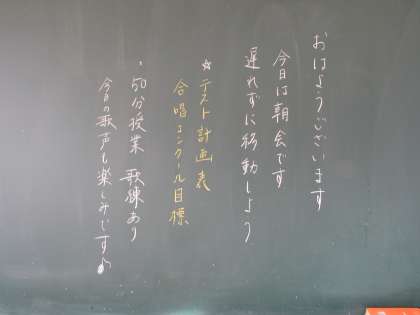 おはようございます
今日は朝会です
遅れずに移動しよう
☆テスト計画表
合唱コンクール目標
・50分授業 歌練あり
今日の歌声も楽しみです♪